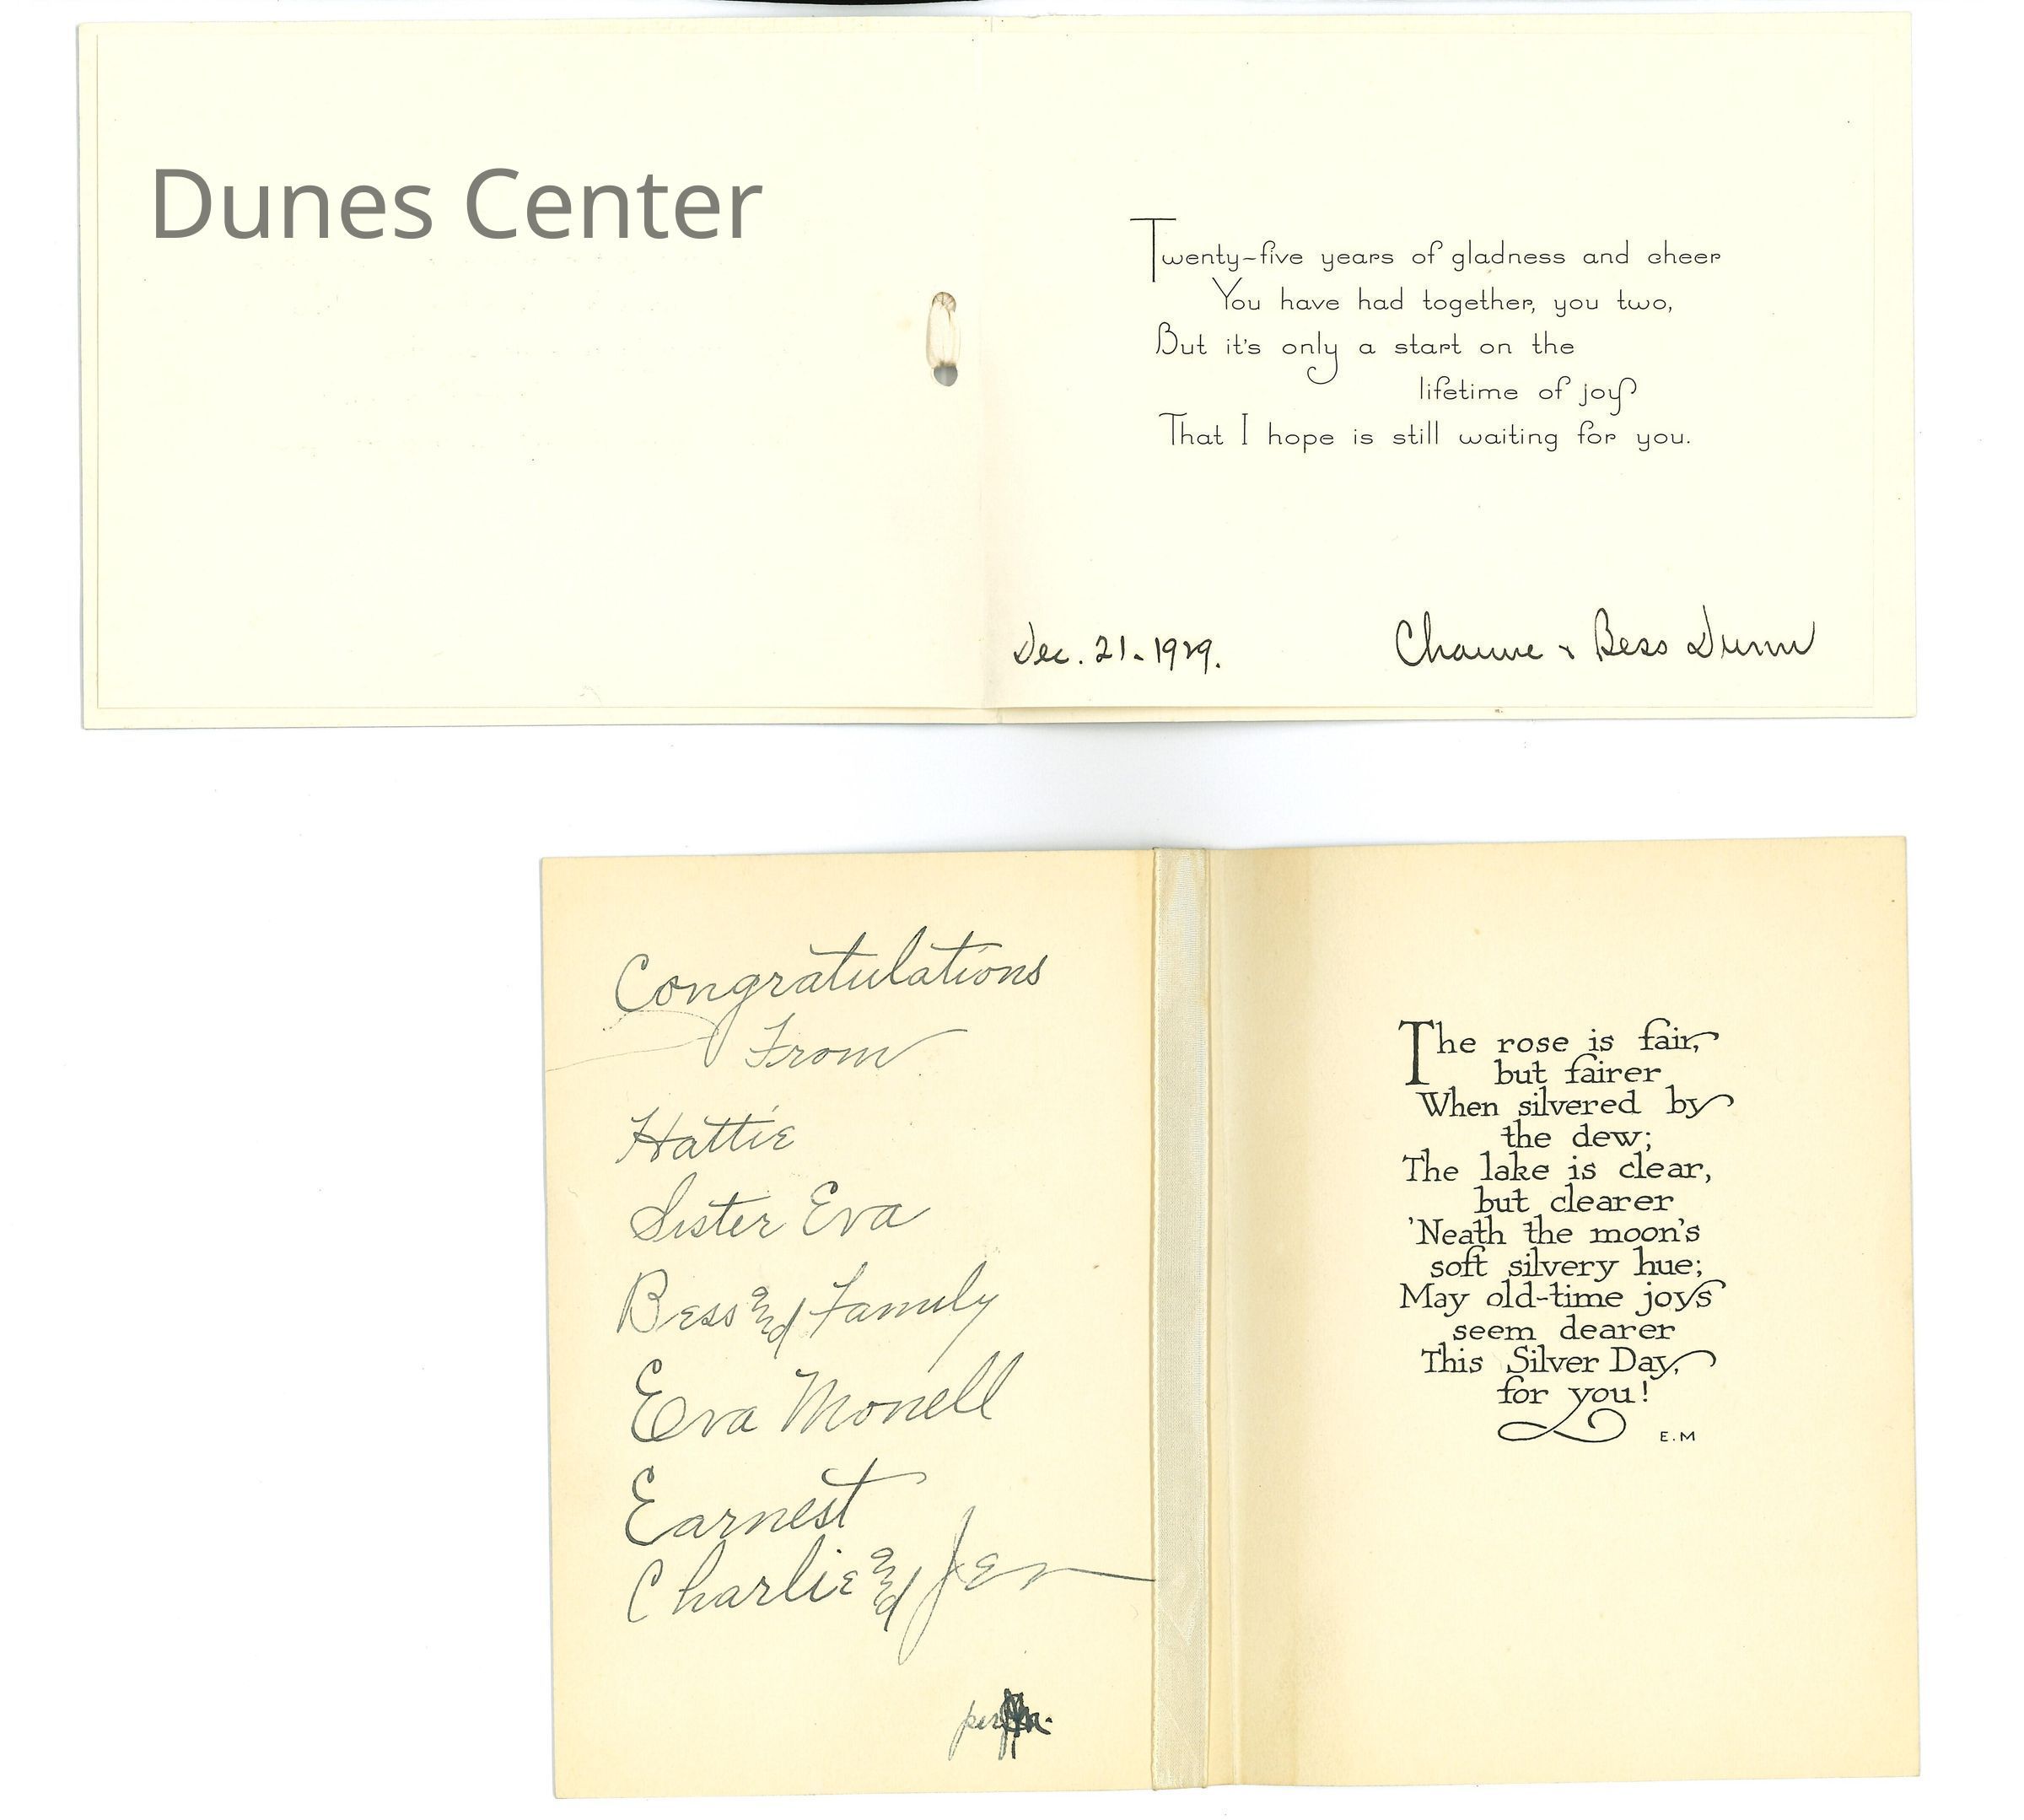 Dunes Center
Twenty-five years of gladness and cheer
You have had together, you two,
But it's only a start on the
lifetime of joy
That I hope is still waiting for you.
Dec. 21-1929.
& Bess Dunn
Congratulations
From
Hattie
Sister Eva
Bess and Family
Eva Monell
Earnest
Charlie and Jen
per
The rose is fair,
but fairer
When silvered by
the dew;
The lake is clear,
but clearer
'Neath the moon's
soft silvery hue;
May old-time joys
seem dearer
This Silver Day,
for you!
E.M